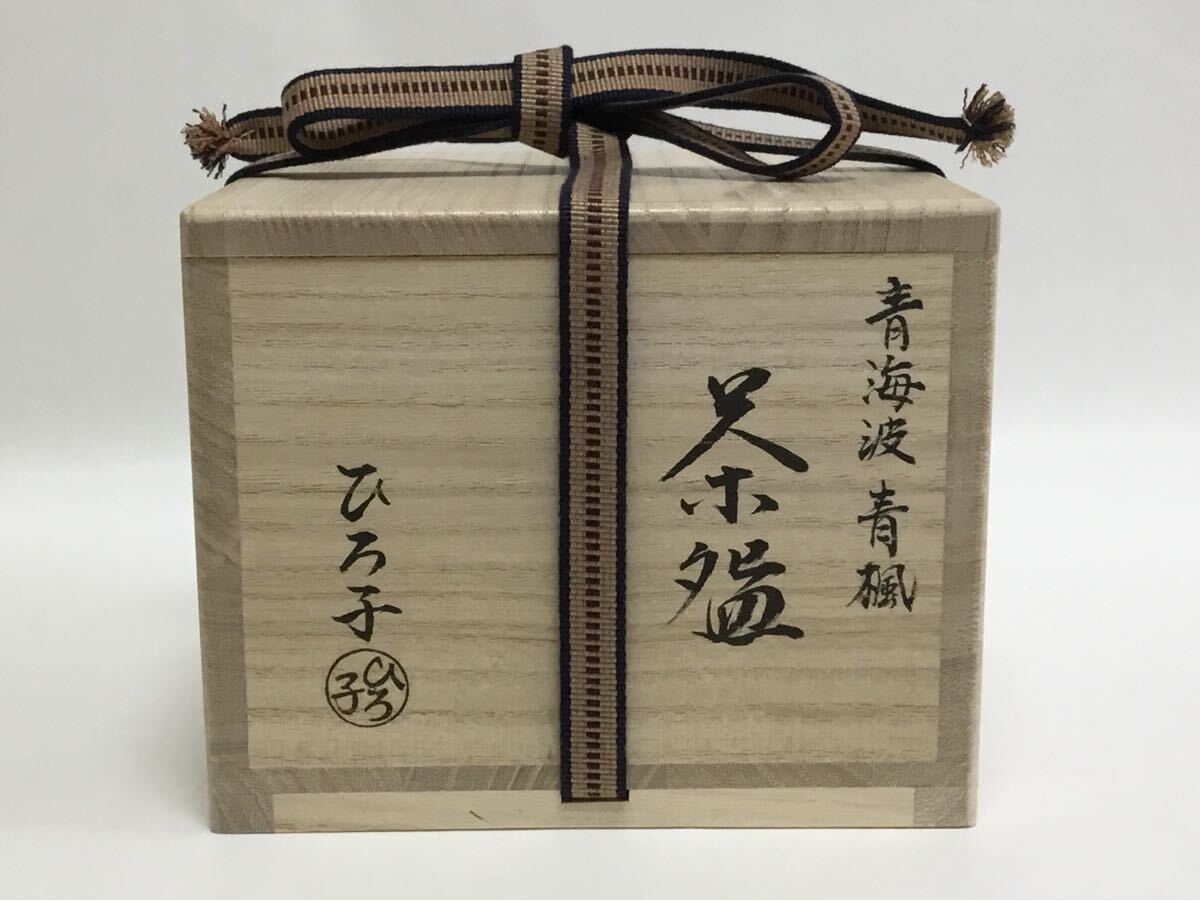 青海波 青楓
茶盌
ひろ子
ひろ子